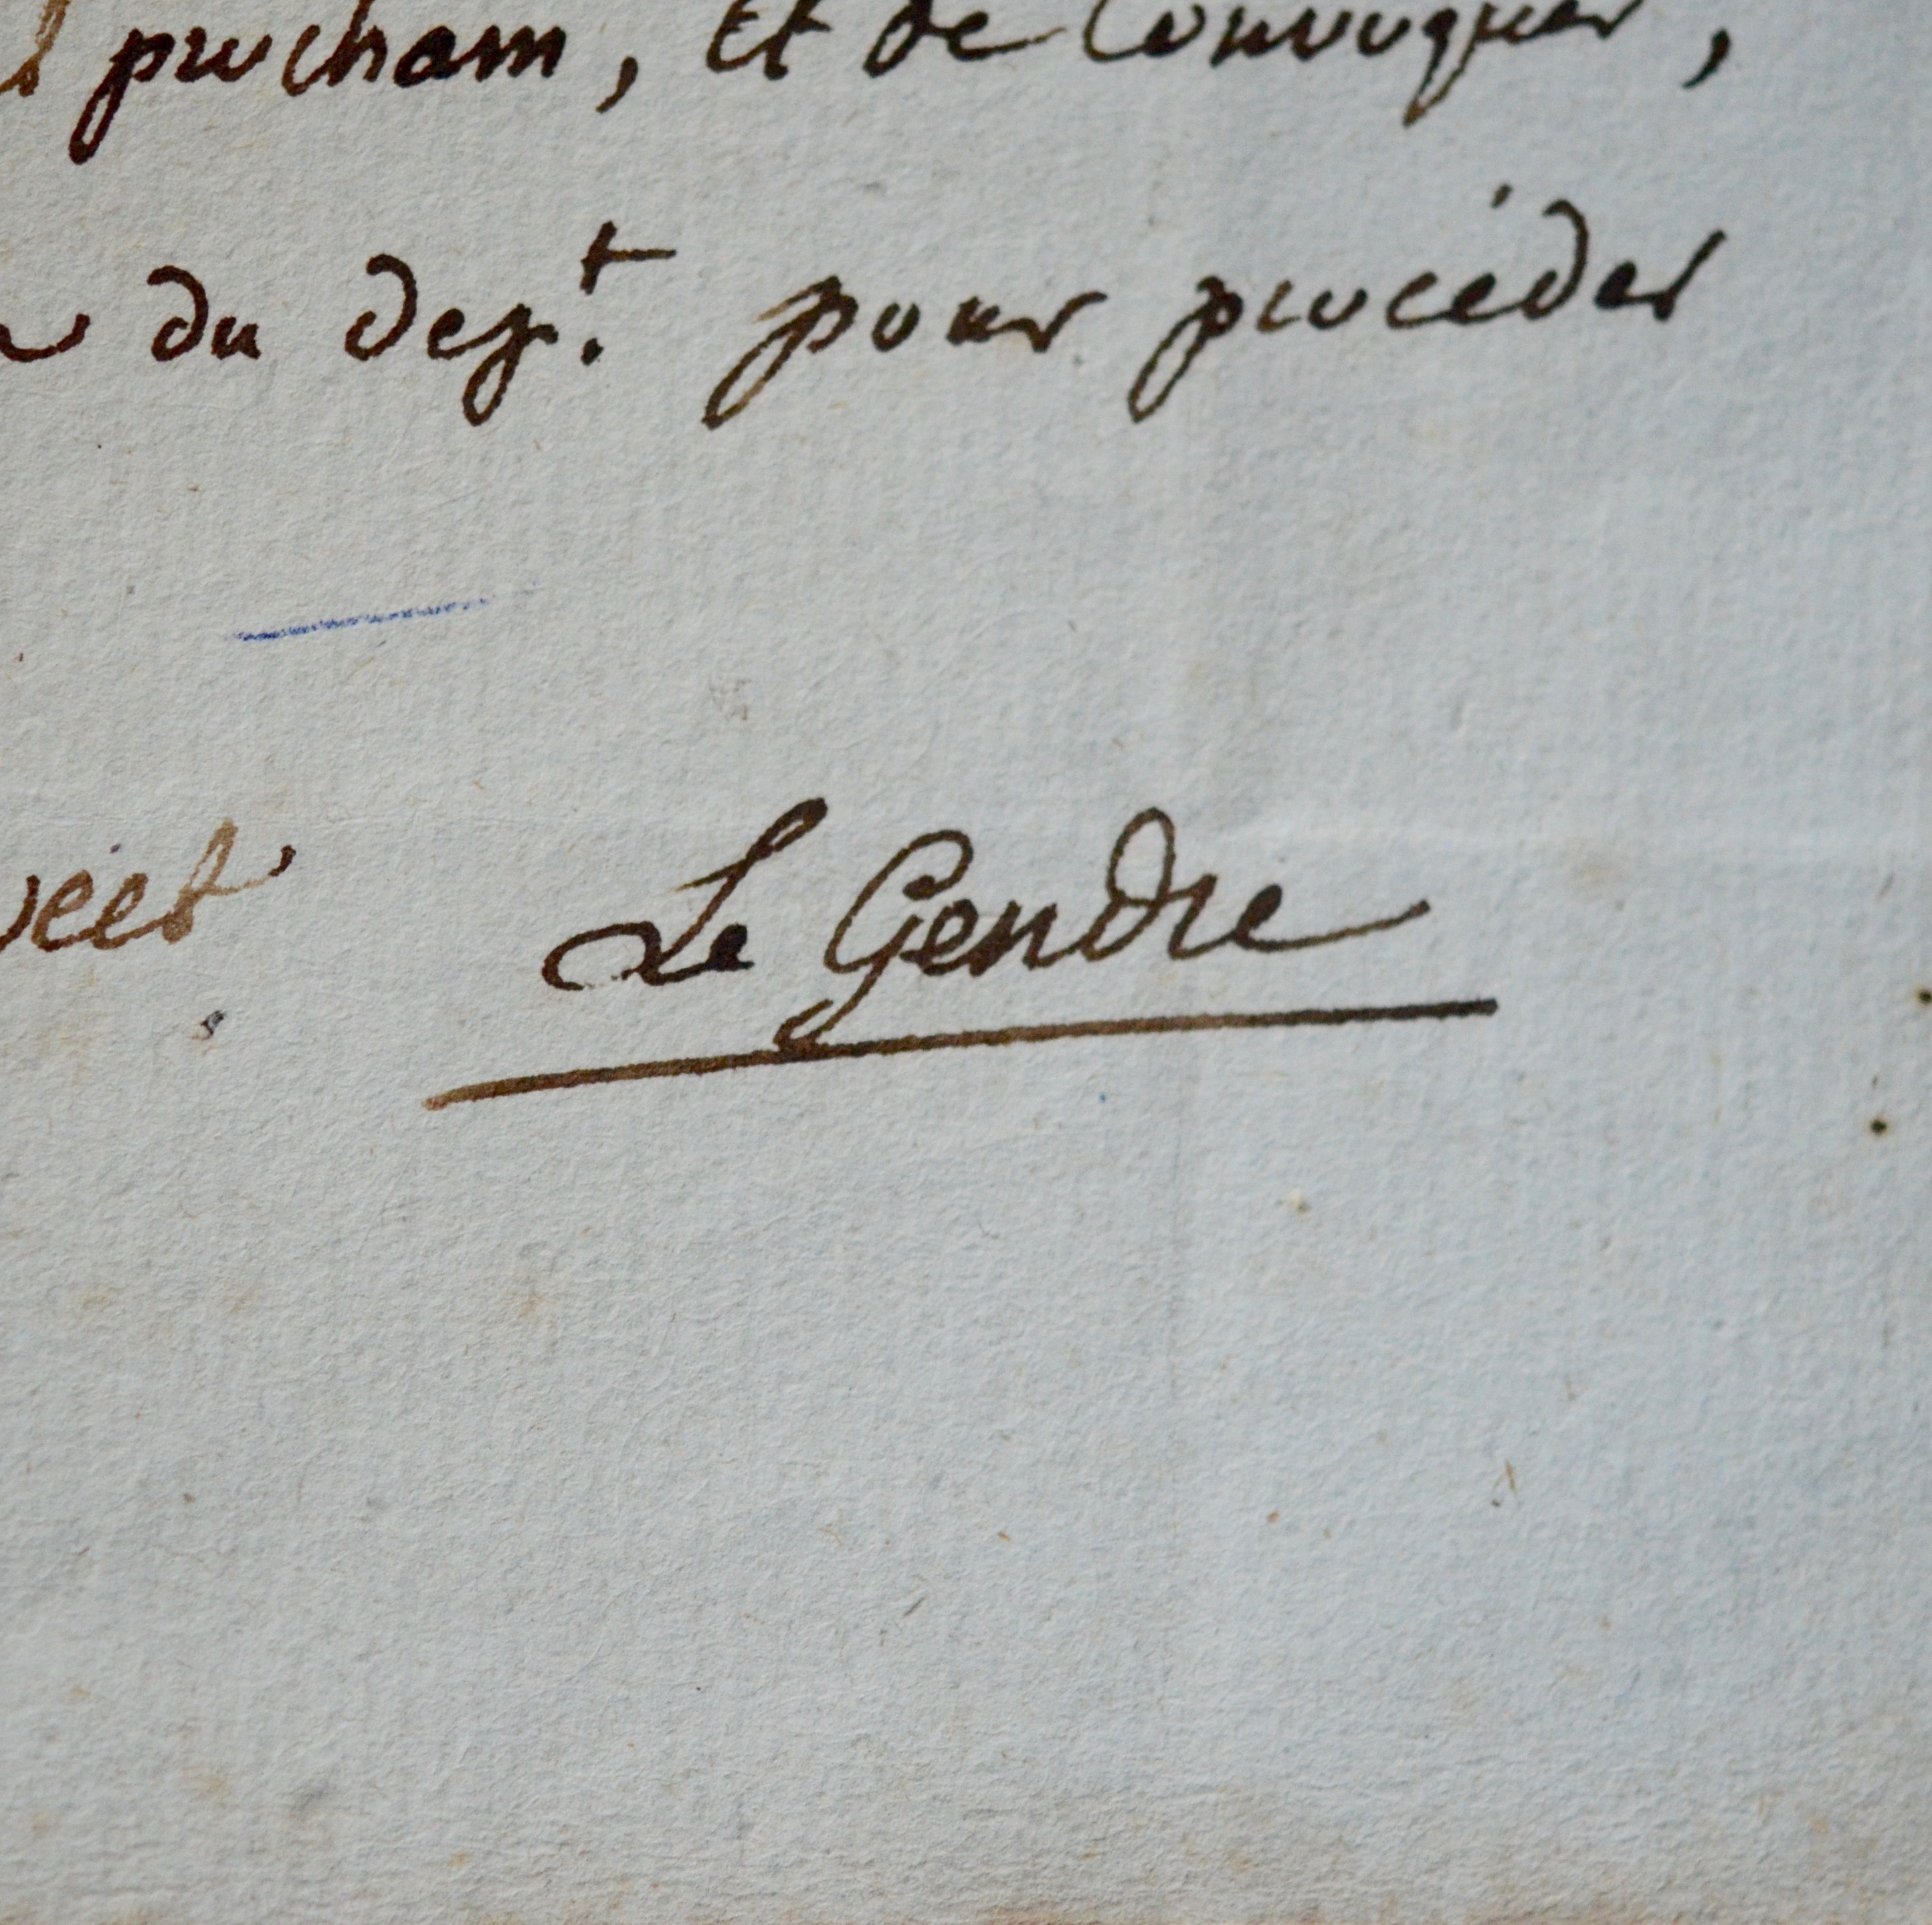 procham, et de Convoquer,
du dept. pour procéder
Le Gendre